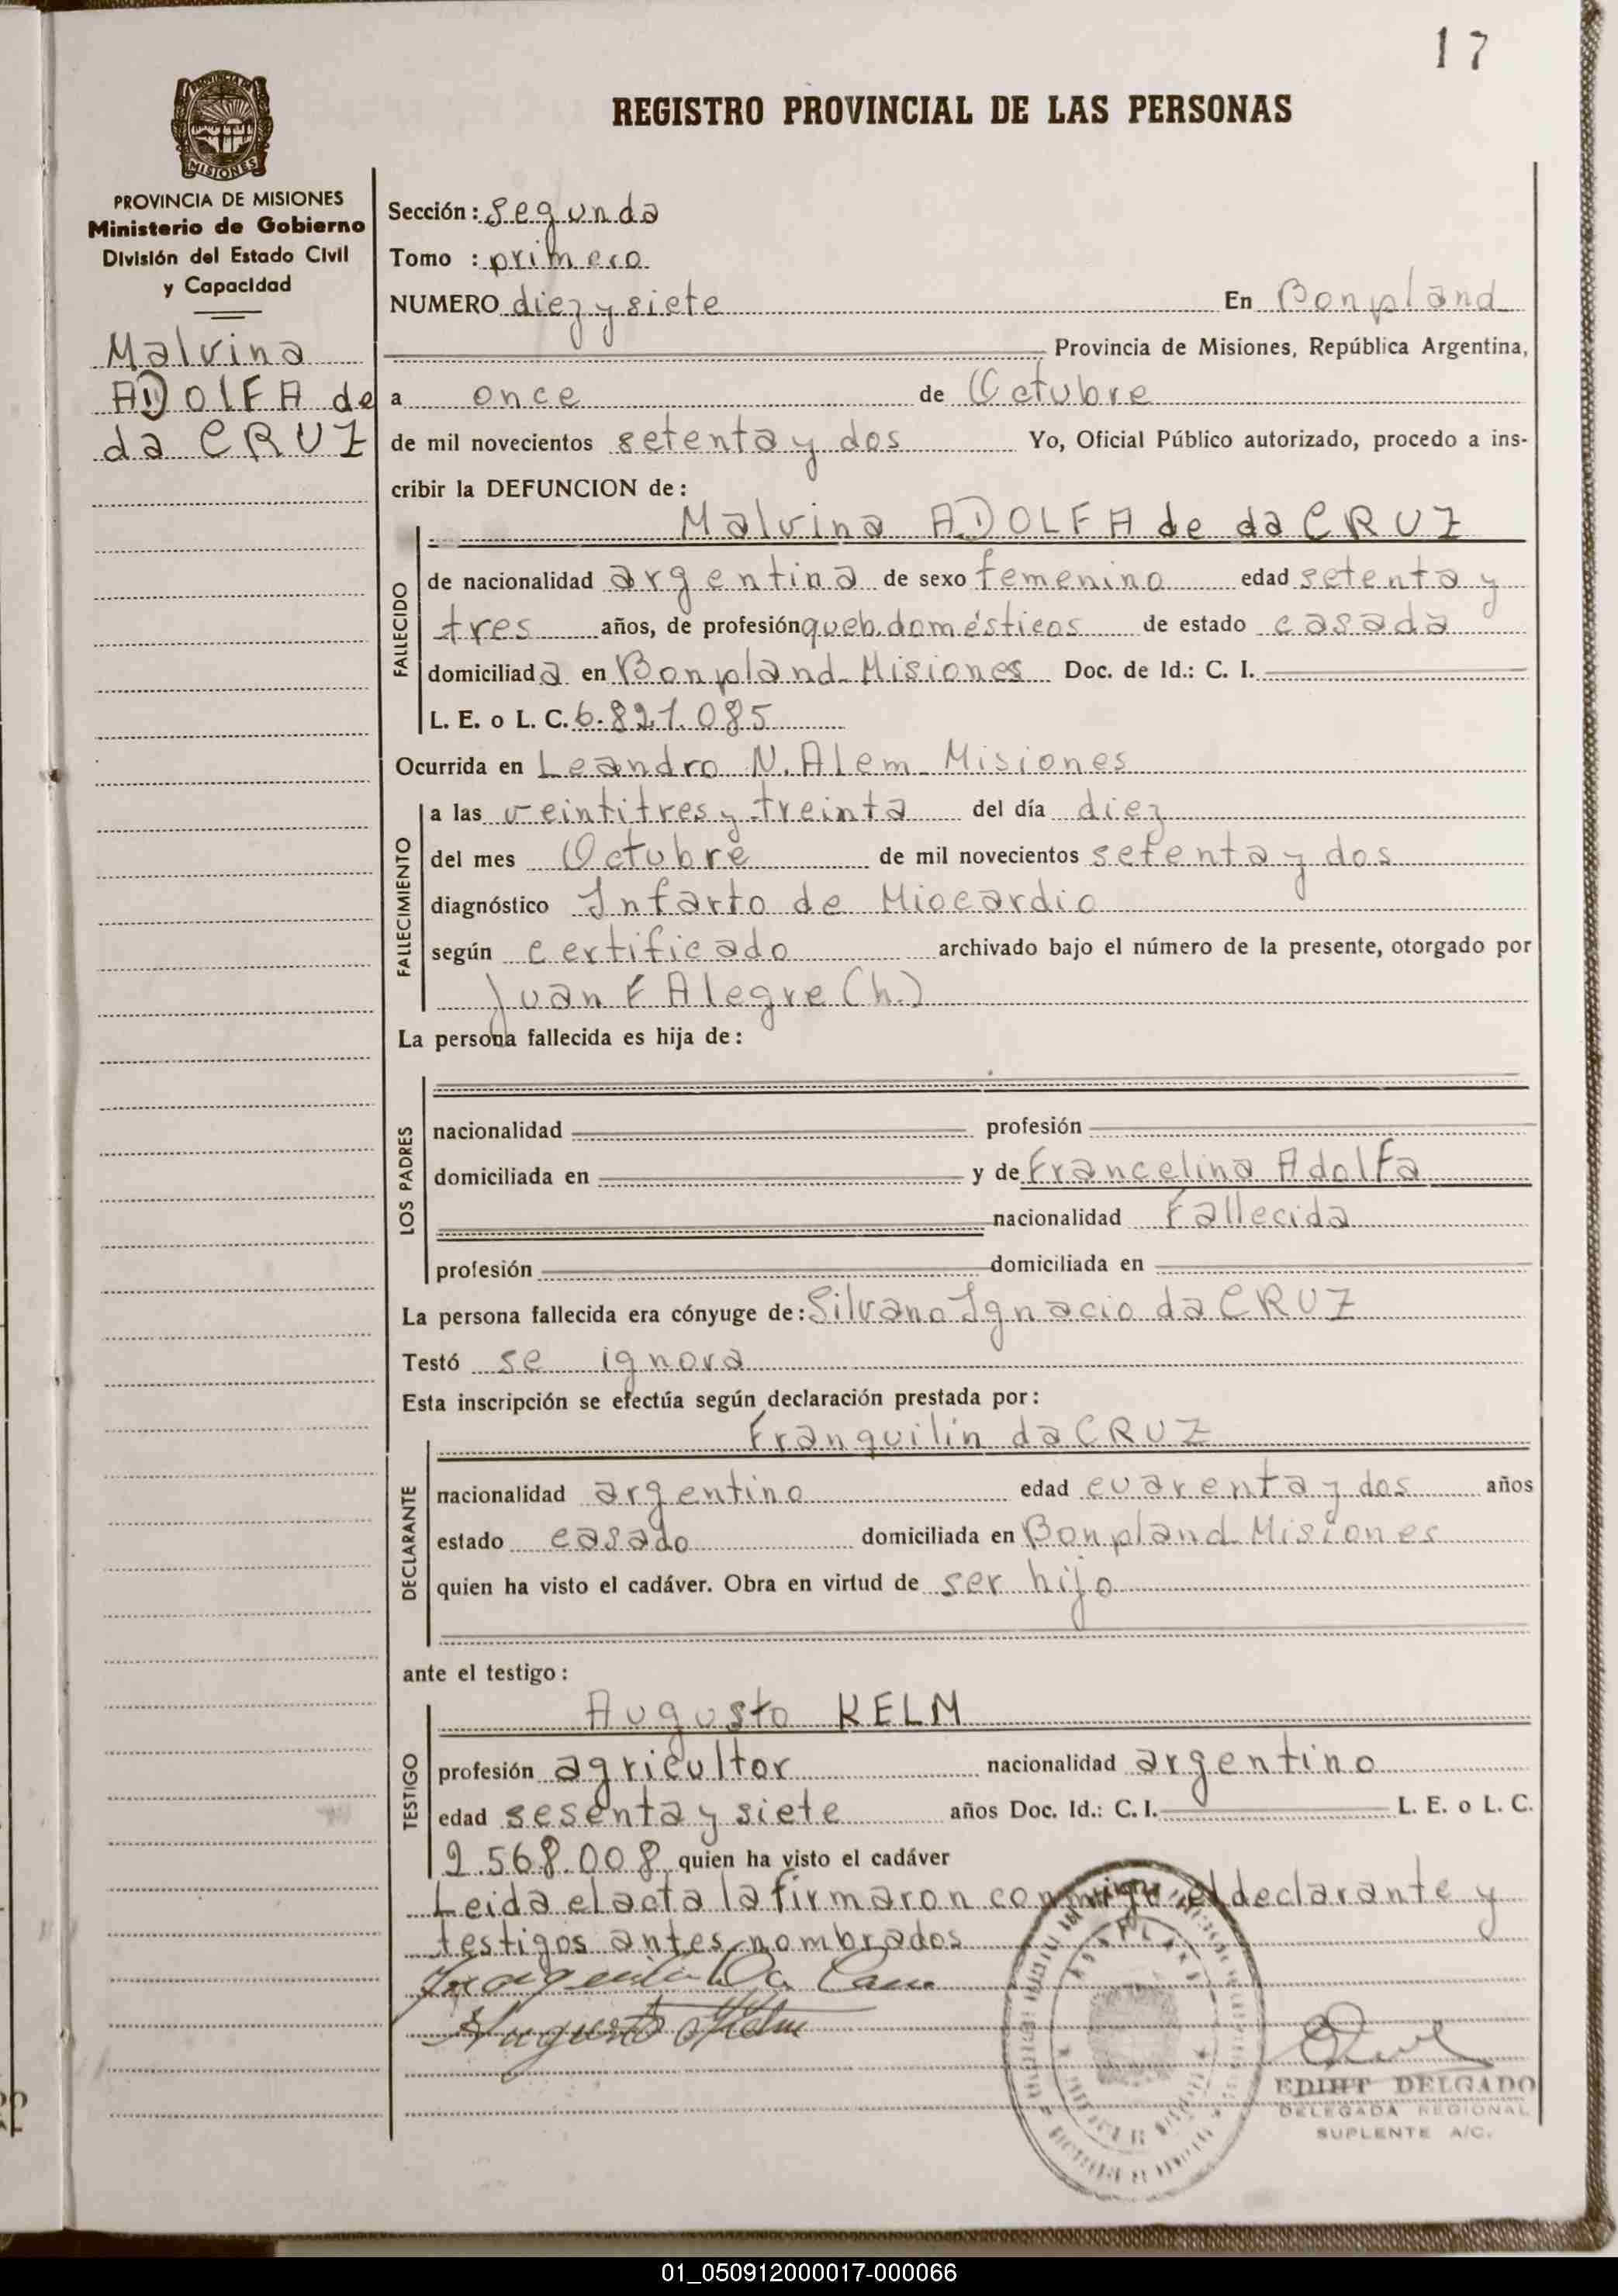 17
REGISTRO PROVINCIAL DE LAS PERSONAS
MISIONES
PROVINCIA DE MISIONES
Ministerio de Gobierno
División del Estado Civil
y Capacidad
Malvina
ADOLFA de
da CRUZ
Sección: Segunda
Tomo : primero
NUMERO diez y siete En Bonpland
Provincia de Misiones, República Argentina,
a once de Octubre
de mil novecientos setenta y dos Yo, Oficial Público autorizado, procedo a ins-
cribir la DEFUNCION de:
Malvina ADOLFA de da CRUZ
FALLECIDO
de nacionalidad argentina de sexo femenino edad setenta y
tres años, de profesión queh. domésticos de estado casada
domiciliada en Bonpland Misiones Doc. de Id.: C. I.
L. E. o L. C. 6.821.085
Ocurrida en Leandro N. Alem Misiones
FALLECIMIENTO
a las veintitres y treinta del día diez
del mes Octubre de mil novecientos setenta y dos
diagnóstico Infarto de Miocardio
según certificado archivado bajo el número de la presente, otorgado por
Juan F Alegre (h.)
La persona fallecida es hija de:
LOS PADRES
nacionalidad profesión
domiciliada en y de Francelina Adolfa
nacionalidad Fallecida
profesión domiciliada en
La persona fallecida era cónyuge de: Silvano Ignacio da CRUZ
Testó se ignora
Esta inscripción se efectúa según declaración prestada por:
Franquilin da CRUZ
DECLARANTE
nacionalidad argentino edad cuarenta y dos años
estado casado domiciliada en Bonpland Misiones
quien ha visto el cadáver. Obra en virtud de ser hijo
ante el testigo:
Augusto KELM
TESTIGO
profesión agricultor nacionalidad argentino
edad sesenta y siete años Doc. Id.: C. I. L. E. o L. C.
2.568.008 quien ha visto el cadáver
Leida el acta la firmaron conmigo el declarante y
testigos antes nombrados
Augusto Kelm
EDIHT DELGADO
DELEGADA REGIONAL
SUPLENTE A/C.
01_050912000017-000066